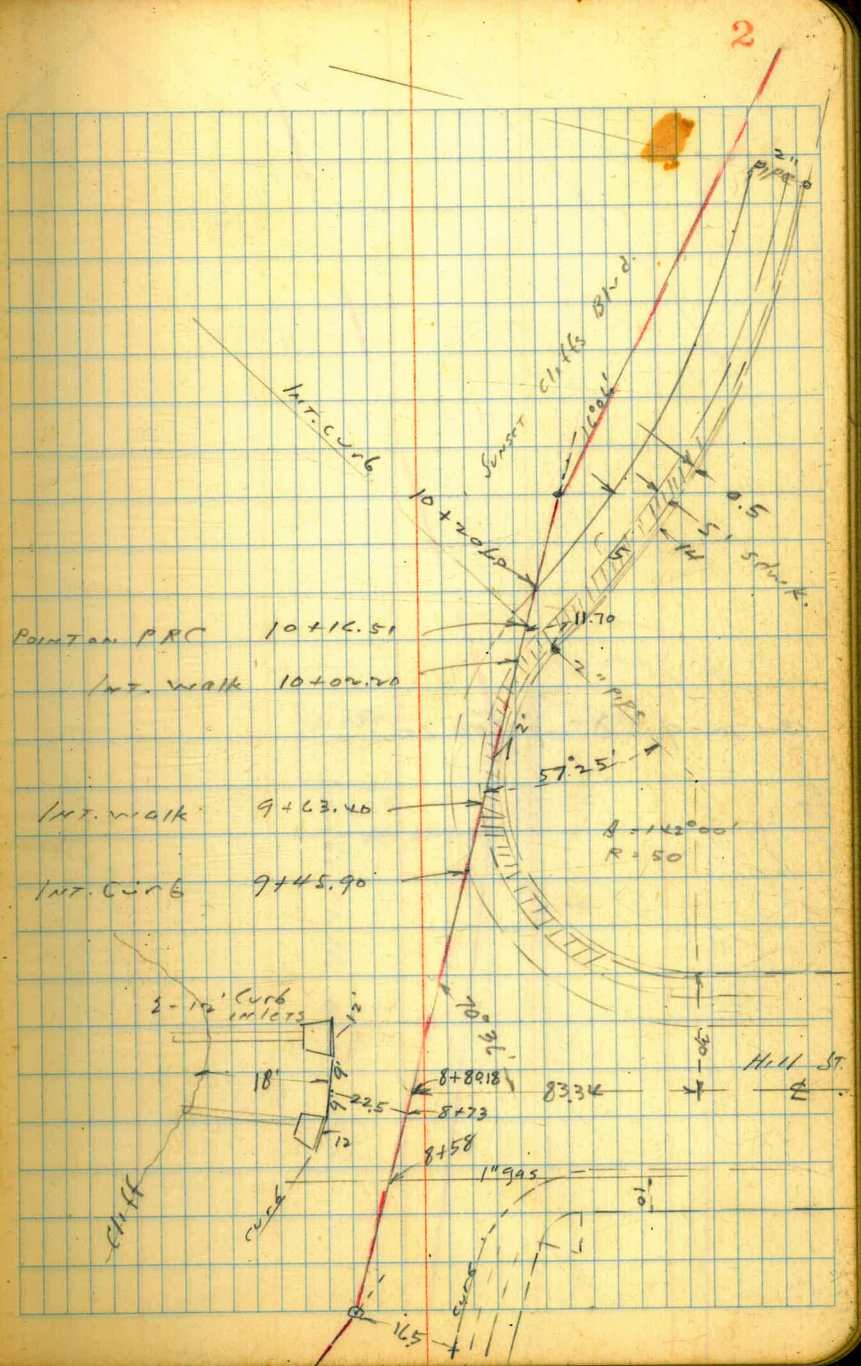 2
2"
pipe
Sunset Cliffs Blvd.
Int. Curb
16°06'
10+20.70
0.5
5' sdwk.
14
5'
Point on PRC 10+16.51
11.70
Int. Walk 10+02.20
2" pipe
2'
57°25'
Int. Walk 9+63.40
Δ=142°00'
R=50
Int. Curb 9+45.90
2-12' Curb
inlets
12'
30
Hill St.
℄
18'
9'
8+80.18
83.34
9"
22.5
8+73
12
8+58
1" gas
10
Cliff
Curb
Curb
16.5